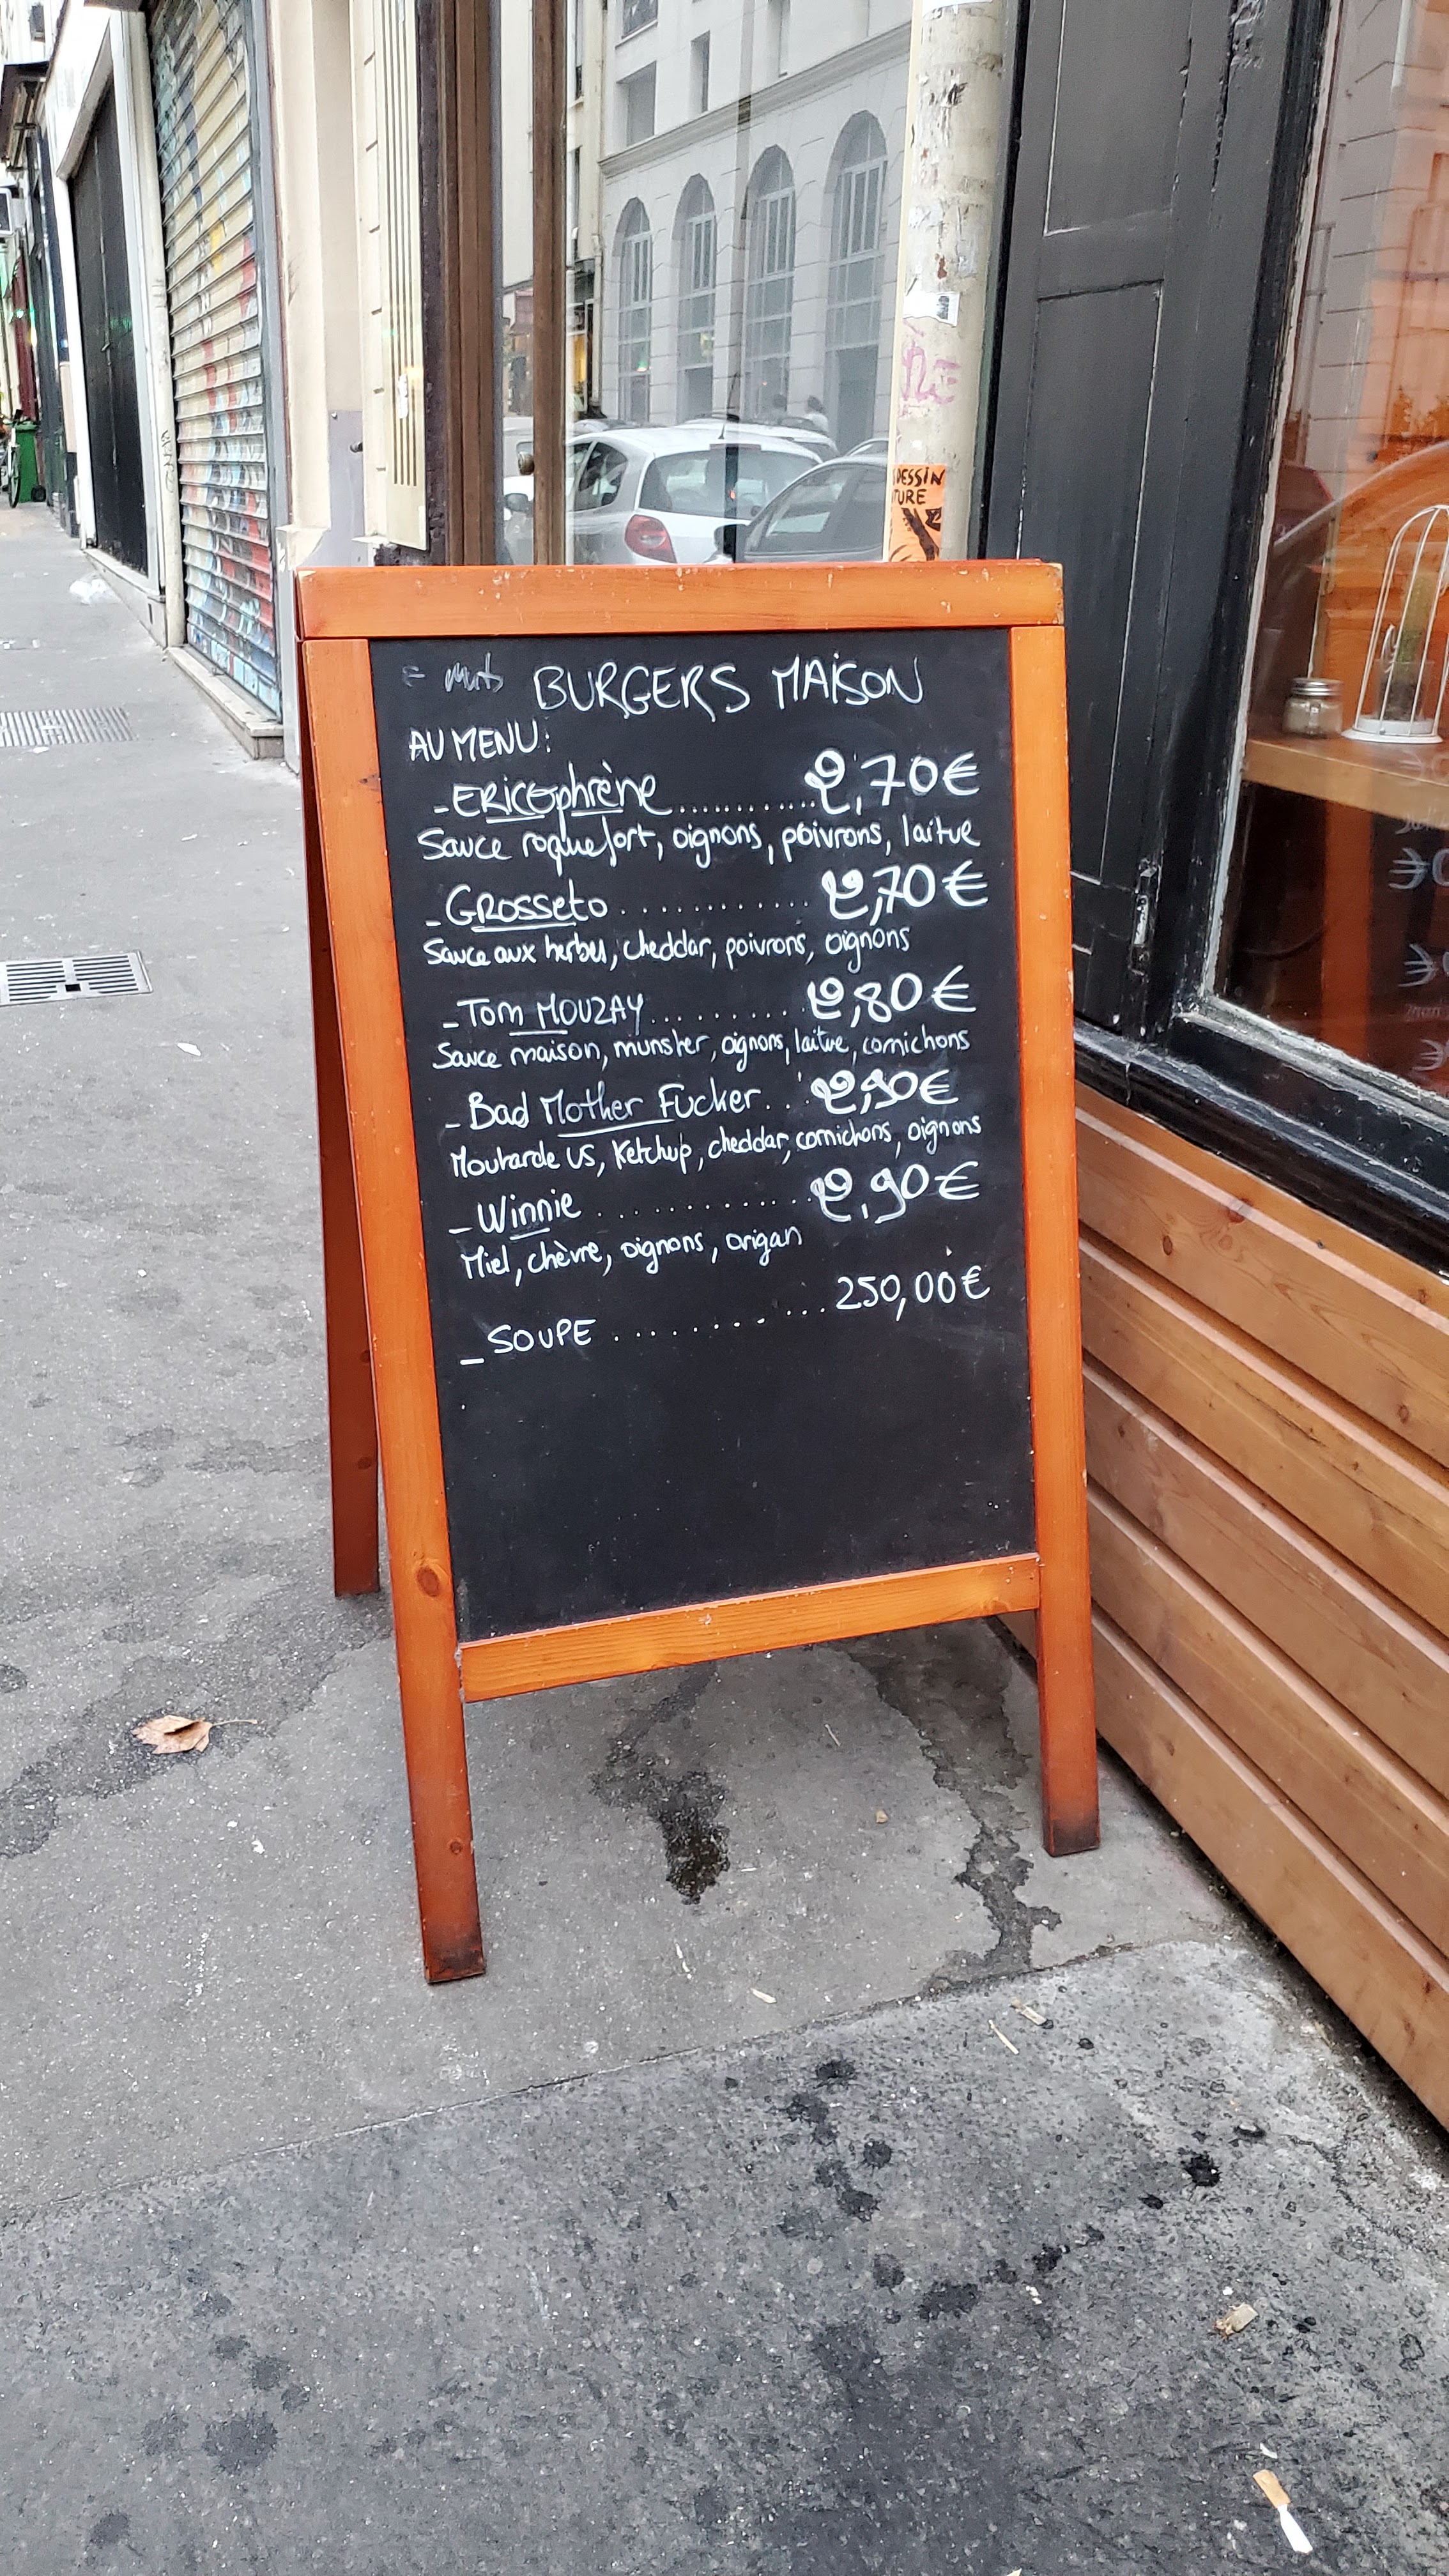 DESSIN
TURE
BURGERS MAISON
AU MENU:
_ERICEphrène............2,70€
Sauce roquefort, oignons, poivrons, laitue
_GROSSETO............2,70€
Sauce aux herbes, cheddar, poivrons, oignons
_Tom MOUZAY..........2,80€
Sauce maison, munster, oignons, laitue, cornichons
_Bad Mother Fucker...2,90€
Moutarde US, Ketchup, cheddar, cornichons, oignons
_Winnie............2,90€
Miel, chèvre, oignons, origan
_SOUPE...........250,00€